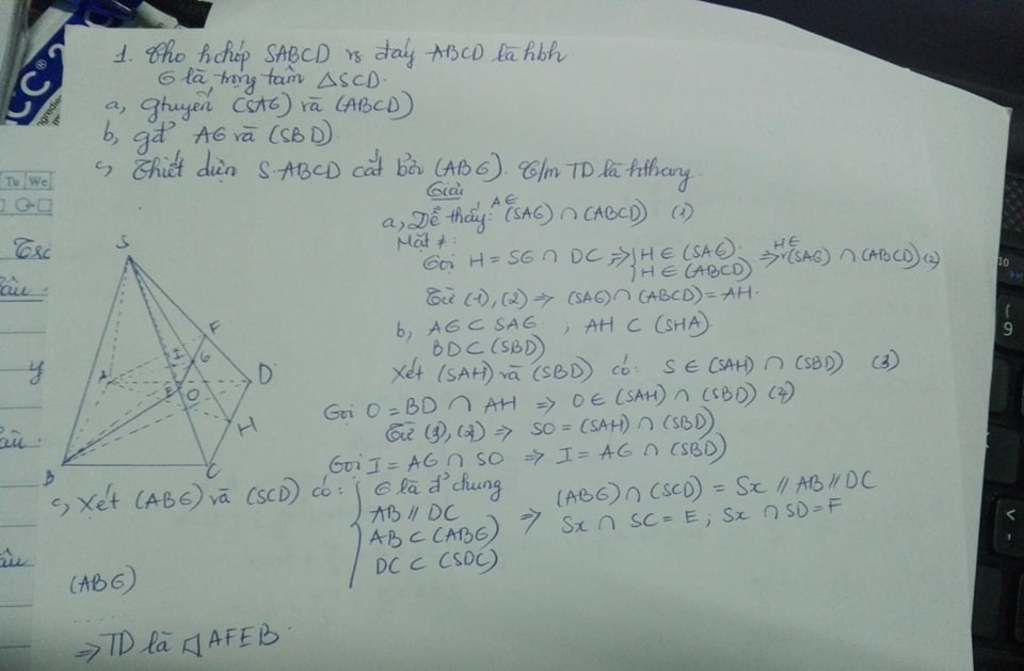 1. Cho hchóp SABCD vs đáy ABCD là hbh
G là trọng tâm △SCD.
a, gtuyến (SAG) và (ABCD)
b, gđ' AG và (SBD)
c, Thiết diện S.ABCD cắt bởi (ABG). C/m TD là hthang.
Giải
a, Dễ thấy: A ∈ (SAG) ∩ (ABCD) (1)
Mặt ≠:
Gọi H = SG ∩ DC ⇒ { H ∈ (SAG)
H ∈ (ABCD) ⇒ H ∈ (SAG) ∩ (ABCD) (2)
Từ (1), (2) ⇒ (SAG) ∩ (ABCD) = AH.
b, AG ⊂ SAG , AH ⊂ (SHA)
BD ⊂ (SBD)
Xét (SAH) và (SBD) có: S ∈ (SAH) ∩ (SBD) (3)
Gọi O = BD ∩ AH ⇒ O ∈ (SAH) ∩ (SBD) (4)
Từ (3), (4) ⇒ SO = (SAH) ∩ (SBD)
Gọi I = AG ∩ SO ⇒ I = AG ∩ (SBD)
c, Xét (ABG) và (SCD) có: { G là đ' chung
AB // DC
AB ⊂ (ABG)
DC ⊂ (SDC)
⇒ (ABG) ∩ (SCD) = Sx // AB // DC
Sx ∩ SC = E ; Sx ∩ SD = F
(ABG)
⇒ TD là AFEB
S
F
I
G
A
D
E
O
H
B
C
Tu We
9